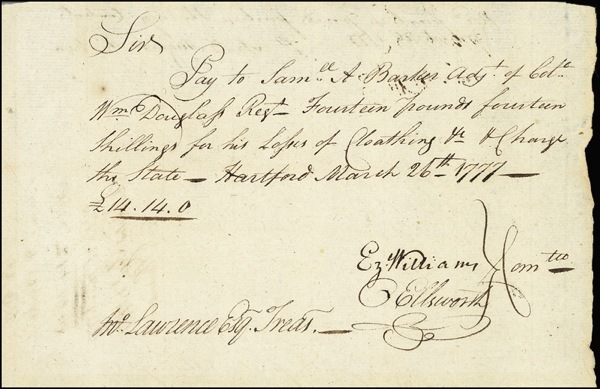 Sir
Pay to Sam.ll A Barker Adj.t of Col.o
Wm Douglass Reg.t — Fourteen pounds fourteen
Shillings for his Losses of Cloathing &c & Charge
the State — Hartford March 26th 1777 —
£14.14.0
Ez. Williams
Ellsworth } Comtee
Jno. Lawrence Esq. Treas. —